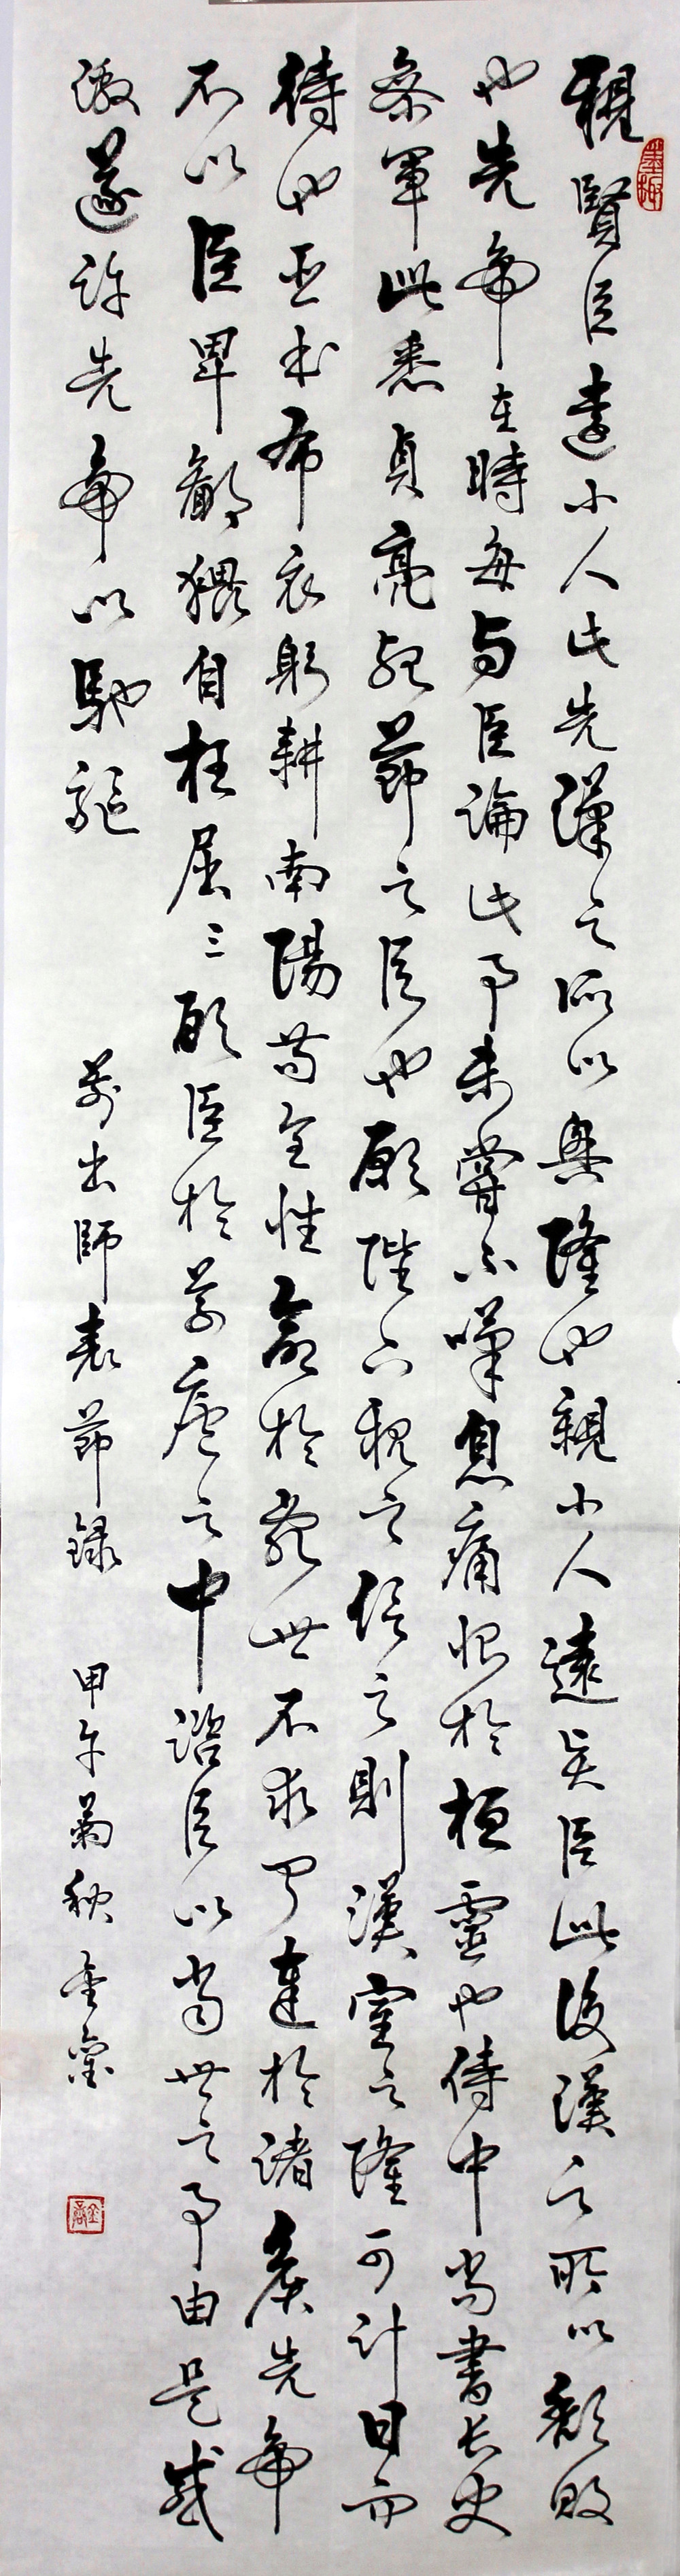 親賢臣遠小人此先漢之所以興隆也親小人遠賢臣此後漢之所以頹敗
也先帝在時每与臣論此事未嘗不嘆息痛恨於桓靈也侍中尚書長史
參軍此悉貞亮死節之臣也願陛下親之信之則漢室之隆可計日而
待也臣本布衣躬耕南陽苟全性命於亂世不求聞達於諸侯先帝
不以臣卑鄙猥自枉屈三顧臣於草廬之中諮臣以當世之事由是感
激遂許先帝以馳驅 前出師表節録 甲午菊秋 金